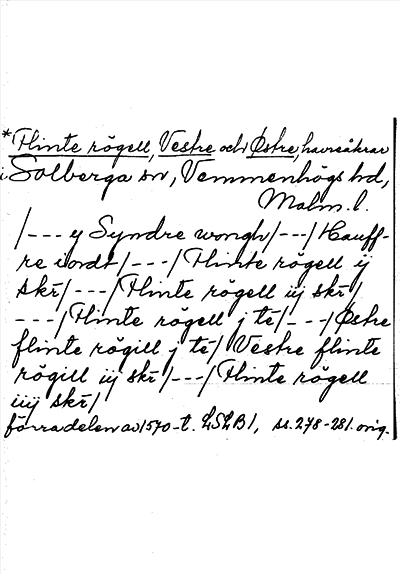 *Flinte rögell, Vestre och Østre, havreåkrar
i Solberga sn, Vemmenhögs hd,
Malm. l.
/--- y Syndre wongh/---/Hauff-
re iordt/---/Flinte rögell ij
skr̄/---/Flinte rögell iij skr̄/
---/Flinte rögell j te/---/Østre
flinte rögill j te/Vestre flinte
rögill iij skr̄/---/Flinte rögell
iiij skr̄/
förra delen av 1570-t. LSLB1, ss. 278-281. orig.